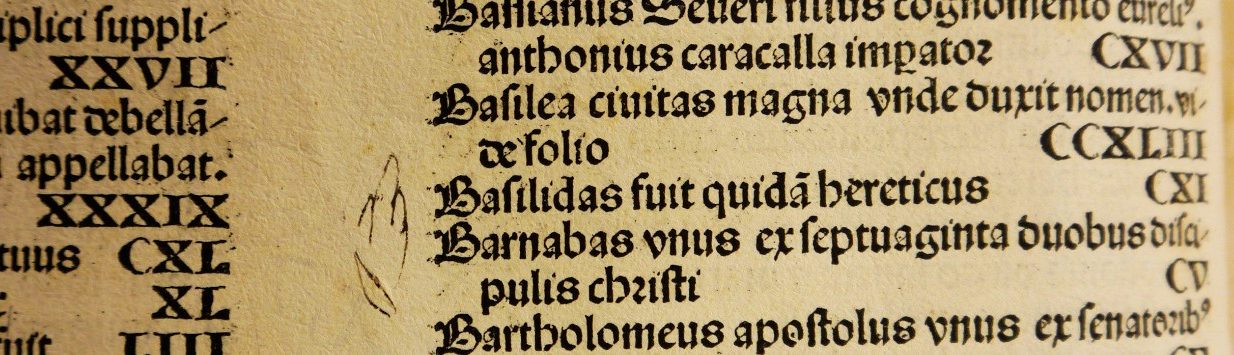 plici suppli-
XXVII
ibat debellā-
appellabat.
XXXIX
tuus CXL
XL
LIII
Bassianus Seueri filius cognomento eureliꝰ.
anthonius caracalla imꝑator CXVII
Basilea ciuitas magna vnde duxit nomen. vi-
de folio CCXLIII
Basilidas fuit quidā hereticus CXI
Barnabas vnus ex septuaginta duobus disci-
pulis christi CV
Bartholomeus apostolus vnus ex senatoribꝰ